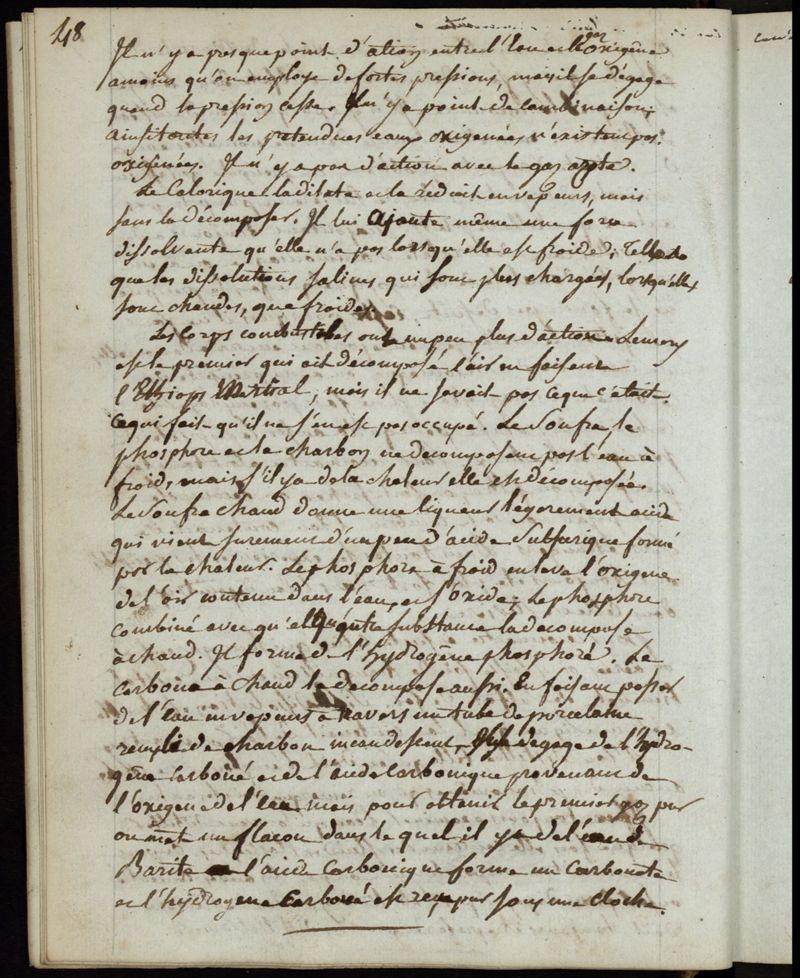 48
Il n'y a presque point d'action entre l'eau et l'oxigène
amoins qu'on employe de fortes pressions, mais il se dégage
quand la pression cesse. Il n'y a point de combinaison;
ainsi toutes les pretendues eaux oxigenées n'existent pas
oxigenées. Il n'y a pas d'action avec le gaz azote.
Le Calorique la dilate et la reduit en vapeurs, mais
sans la décomposer. Il lui ajoute même une force
dissolvante qu'elle n'a pas lorsqu'elle est froide; Telles
que les dissolutions salines qui sont plus chargées, lorsqu'elles
sont chaudes, que froides.
Les Corps combustibles ont un peu plus d'action. Lemery
est le premier qui ait décomposé l'air en faisant
l'Ethiops Martial, mais il ne savait pas ce que c'était.
Ce qui fait qu'il ne s'en est pas occupé. Le Soufre, le
phosphore et le charbon ne decomposent pas l'eau à
froid, mais s'il y a de la chaleur elle est décomposée.
Le soufre chaud donne une liqueur légerement acide
qui vient surement d'un peu d'acide Sulfurique formé
par la chaleur. Le phosphore à froid enleve l'oxigene
de l'air contenu dans l'eau, et s'oxide; le phosphore
combiné avec quelqu'autre substance la decompose
à chaud. Il forme de l'hydrogène phosphoré. Le
Carbone à chaud la decompose aussi. En faisant passer
de l'eau en vapeurs à travers un tube de porcelaine
rempli de charbon incandescent, il se degage de l'hydro-
gène carboné et de l'acide Carbonique provenant de
l'oxigene de l'eau mais pour obtenir le premier gaz pur
on met un flacon dans le quel il y a de l'eau de
Barite l'acide Carbonique forme un Carbonate
et l'hydrogene Carboné est reçu pur sous une Cloche.